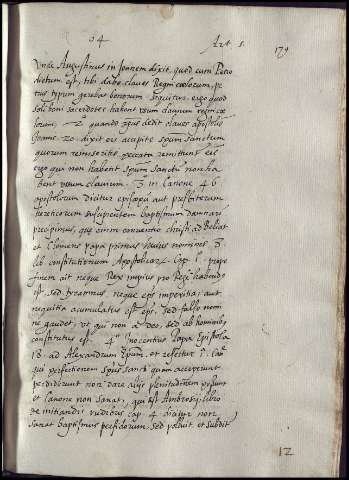 04 Art. 5. 179
Unde Augustinus in Joannem dixit, quod cum Petro
dictum est, tibi dabo claves Regni coelorum, pe
trus typum gerebat bonorum sequitur ergo quod
soli boni sacerdotes habent usum clavium regni coe
lorum. 2º quando xpus dedit claves apostolis
Joanis 20 dixit eis accipite spum sanctum
quorum remiseritis peccata remittunt eis
ergo qui non habent spum sanctu non ha
bent usum clavium. 3º in Canone 46
apostolorum dicitur episcopu aut presbiterum
hereticorum suscipientem baptismum damnari
precipimus, que enim conventio christi ad Beliat
et Clemens papa primus huius nominis 3.
lib constitutionum Apostolicar. Cap. 1. prope
finem ait neque Rex impius pro Rege habendus
est, sed tyrannus, neque eps imperitia, aut
nequitia cumulatus est eps, sed falso nomi
ne gaudet, ut qui non a deo, sed ab hominibus
constitutus est. 4º Inocentius Papa Epistola
18. ad Alexandrum Epum, et refertur 1.
qui perfectionem spus sancti quam acceperunt
perdiderunt non dare eius plenitudinem possunt
et Canone non sanat, qui est Ambrosij libro
de initiandis rudibus cap. 4 dicitur non
sanat baptismus perfidorum, sed polluit, et subdit
12